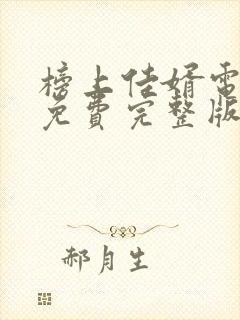 榜上佳婿電
免費完整版
郝月生